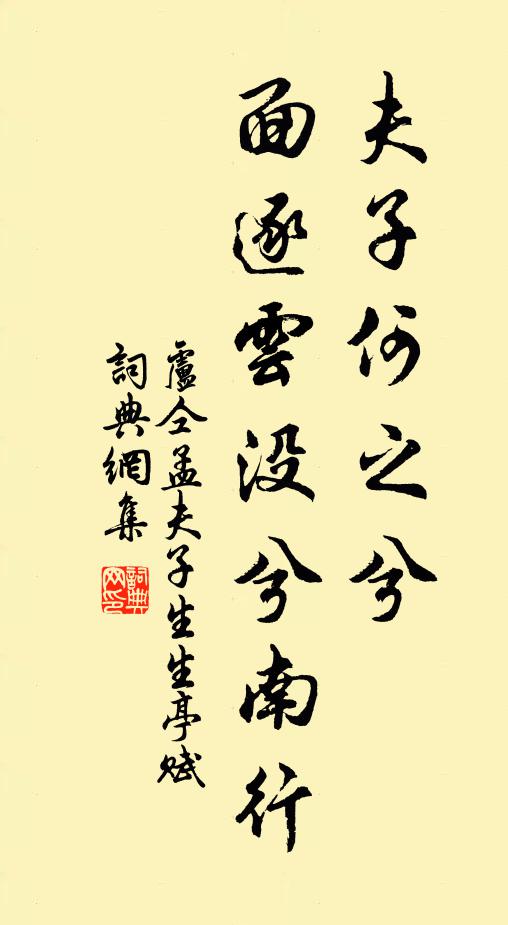 夫子何之兮
面逐雲没兮南行
盧仝孟夫子生生亭賦
詞典網集
詞典網印